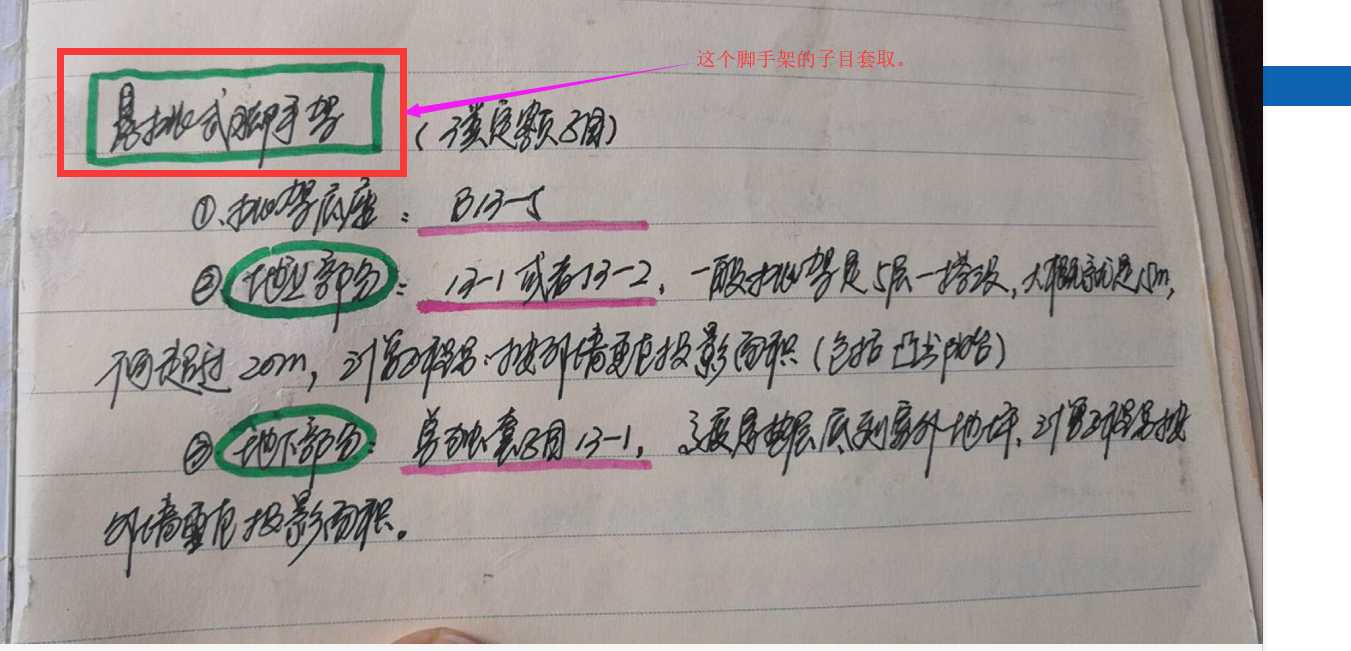 这个脚手架的子目套取。
悬挑式脚手架 (三类定额子目)
①、挑架底座: B13-5
② 地上部分: 13-1 或者13-2, 一般挑架是5层一搭设, 大概就是15m,
不可超过 20m, 计算工程量:按外墙垂直投影面积 (包括凸出阳台)
③ 地下部分: 单独套子目 13-1, 高度是垫层底到室外地坪, 计算工程量按
外墙垂直投影面积。